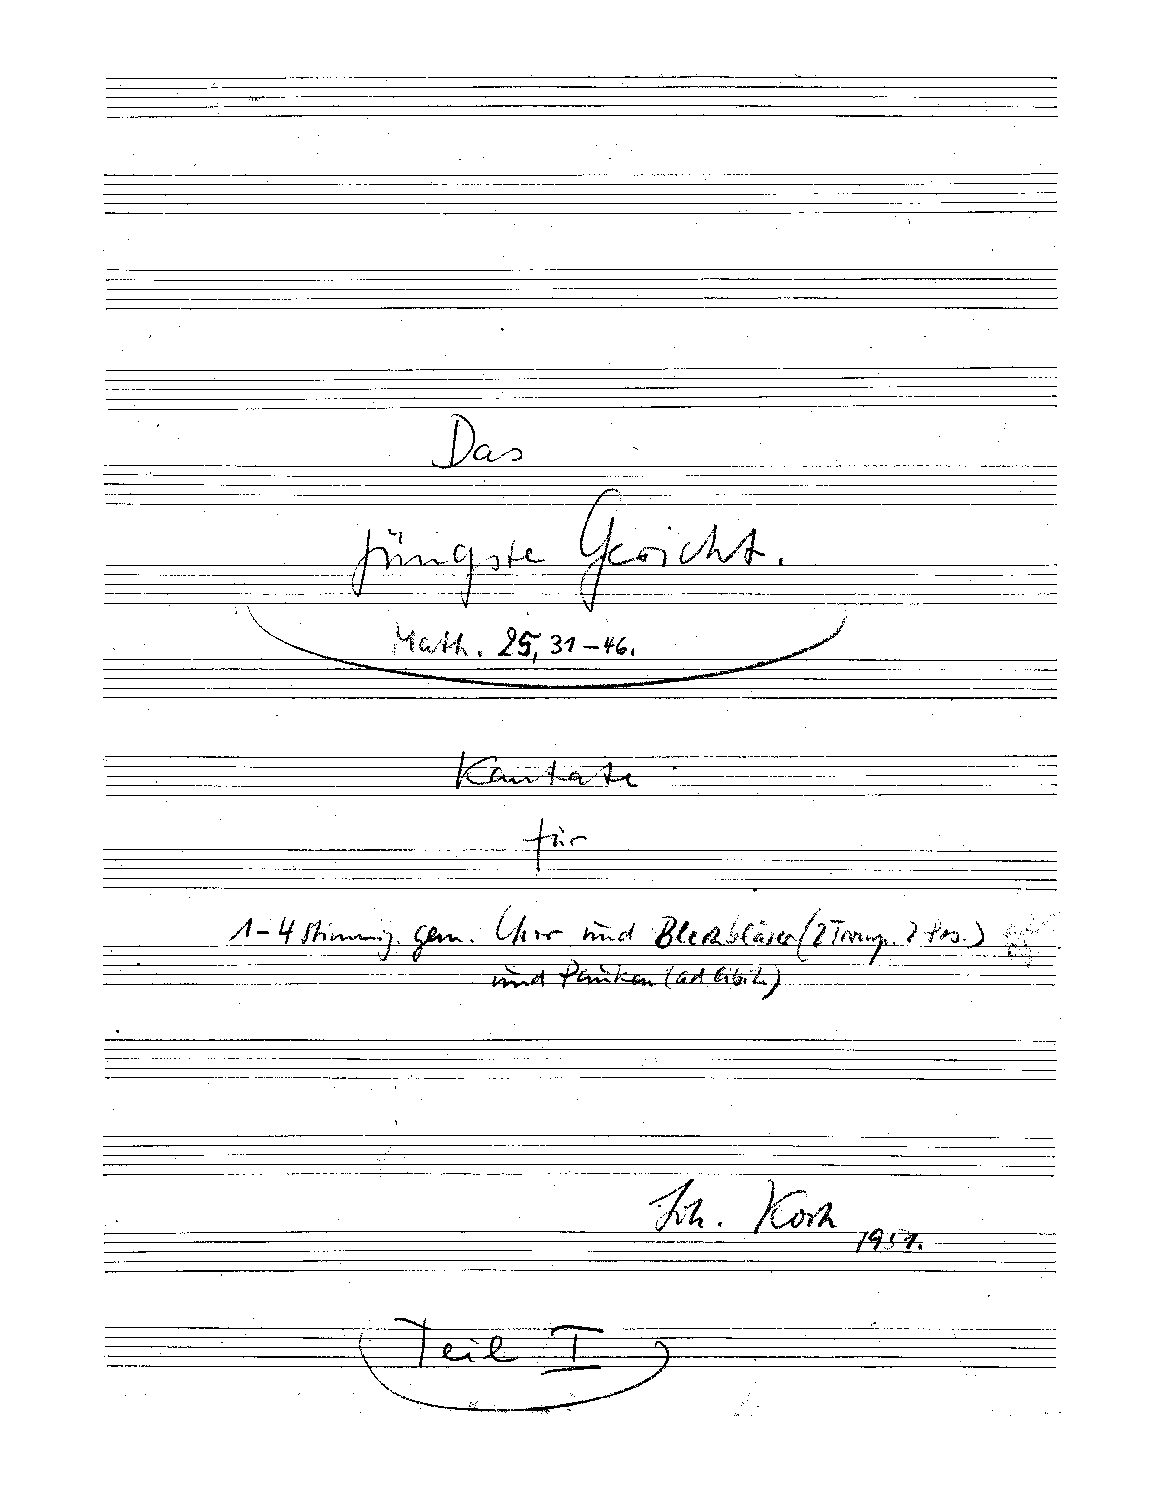 Das
jüngste Gericht.
Math. 25, 31-46.
Kantate
für
1-4 stimmig. gem. Chor und Blechbläser (2 Tromp. 2 Pos.)
und Pauken (ad libit.)
Joh. Koch
1951.
Teil I